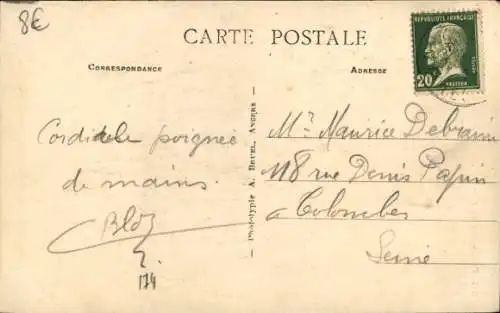 8€
CARTE POSTALE
CORRESPONDANCE
ADRESSE
REPUBLIQUE FRANÇAISE
20
PASTEUR
POSTES
Cordiale poignée
de mains.
Phototypie A. Bruel, Angers
Mr Maurice
118 rue Denis Papin
a Colombes
Seine
174